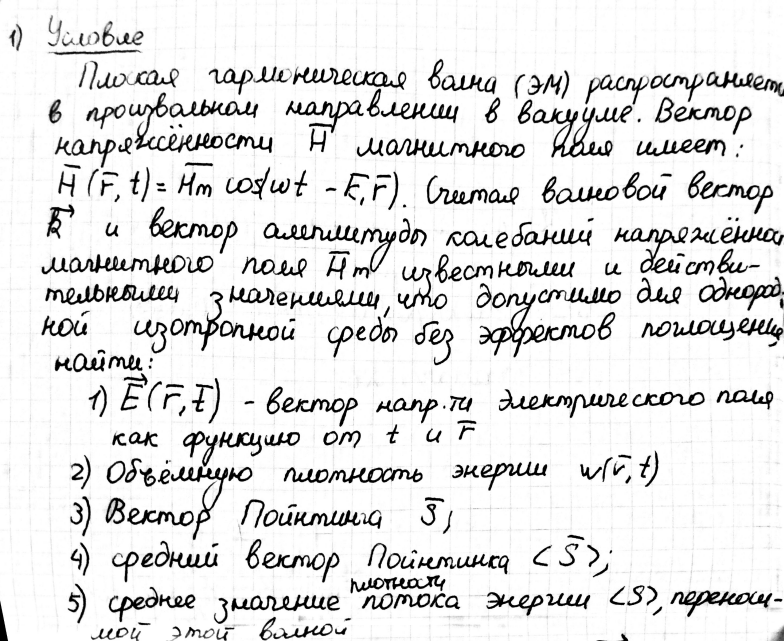 1) Условие
Плоская гармоническая волна (ЭМ) распространяет
в произвольном направлении в вакууме. Вектор
напряжённости H̅ магнитного поля имеет:
H̅(r̅, t) = H̅m cos(wt - k̅, r̅). Считая волновой вектор
k⃗ и вектор амплитуды колебаний напряжённос
магнитного поля H̅m известными и действи-
тельными значениями, что допустимо для однород-
ной изотропной среды без эффектов поглощени
найти:
1) E⃗(r̅, t̅) - вектор напр.ти электрического поля
как функцию от t и r̅
2) Объёмную плотность энергии w(r̅, t)
3) Вектор Пойнтинга S̅;
4) средний вектор Пойнтинка <S̅>;
5) среднее значение плотности потока энергии <S>, перенои-
мой этой волной